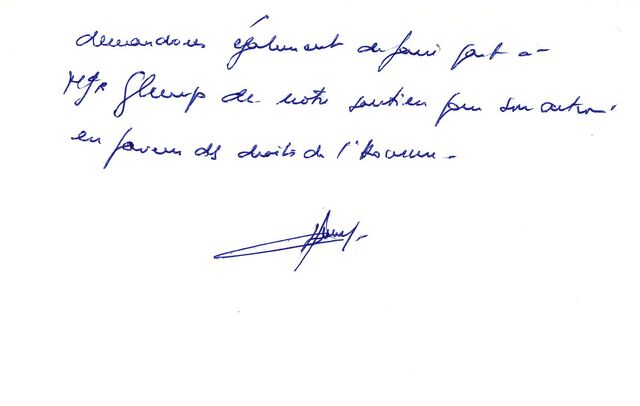 demandons également de faire part à
Mgr Glemp de notre soutien pour son action
en faveur des droits de l'Homme.